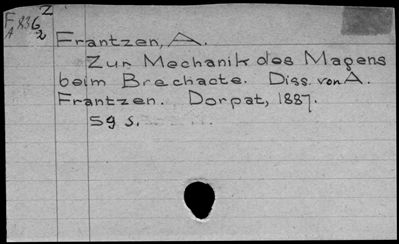 Z
F 836
A 2
Frantzen, A.
Zur Mechanik des Magens
beim Brechacte. Diss. von A.
Frantzen. Dorpat, 1887.
59 s.